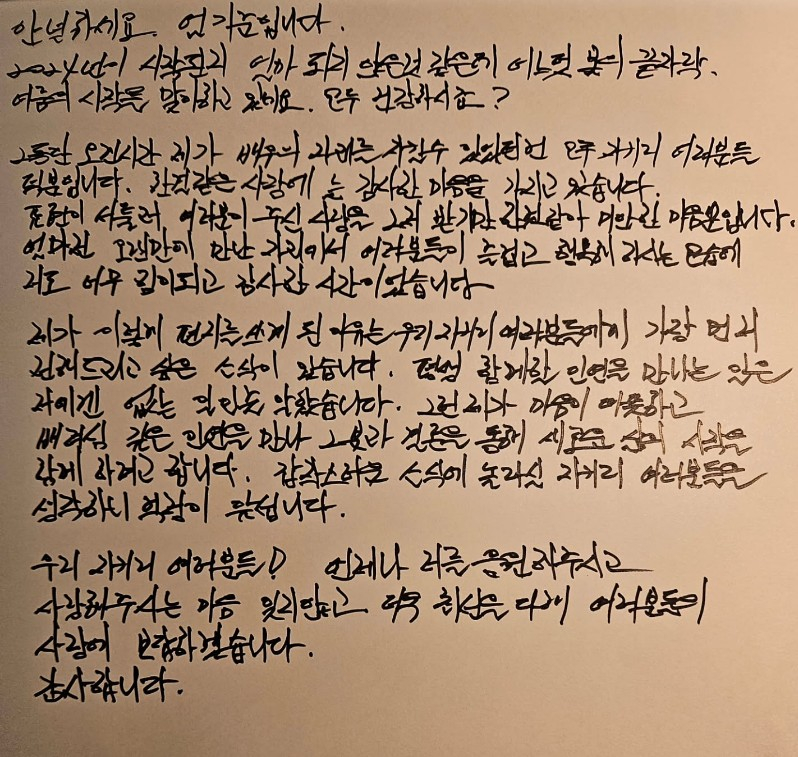 안녕하세요. 엄기준입니다.
2024년이 시작된지 얼마 되지 않은것 같은데 어느덧 봄의 끝자락.
여름의 시작을 맞이하고 있네요. 모두 건강하시죠?
그동안 오랜시간 제가 배우의 자리를 지킬수 있었던건 모두 자기리 여러분들
덕분입니다. 한결같은 사랑에 늘 감사한 마음을 가지고 있습니다.
표현이 서툴러 여러분이 주신 사랑을 그저 받기만 한것같아 미안한 마음뿐입니다.
얼마전 오랜만에 만난 자리에서 여러분들이 즐겁고 행복해 하시는 모습에
저도 너무 힘이되고 감사한 시간이었습니다
제가 이렇게 편지를 쓰게 된 이유는 우리 자기리 여러분들에게 가장 먼저
전해드리고 싶은 소식이 있습니다. 평생 함께할 인연을 만나는 일은
저에겐 없는 일인줄 알았습니다. 그런 제가 마음이 따뜻하고
배려심 깊은 인연을 만나 그분과 결혼을 통해 새로운 삶의 시작을
함께 하려고 합니다. 갑작스러운 소식에 놀라실 자기리 여러분들을
생각하니 걱정이 듭니다.
우리 자기리 여러분들! 언제나 저를 응원해주시고
사랑해주시는 마음 잊지않고 더욱 최선을 다해 여러분들의
사랑에 보답하겠습니다.
감사합니다.